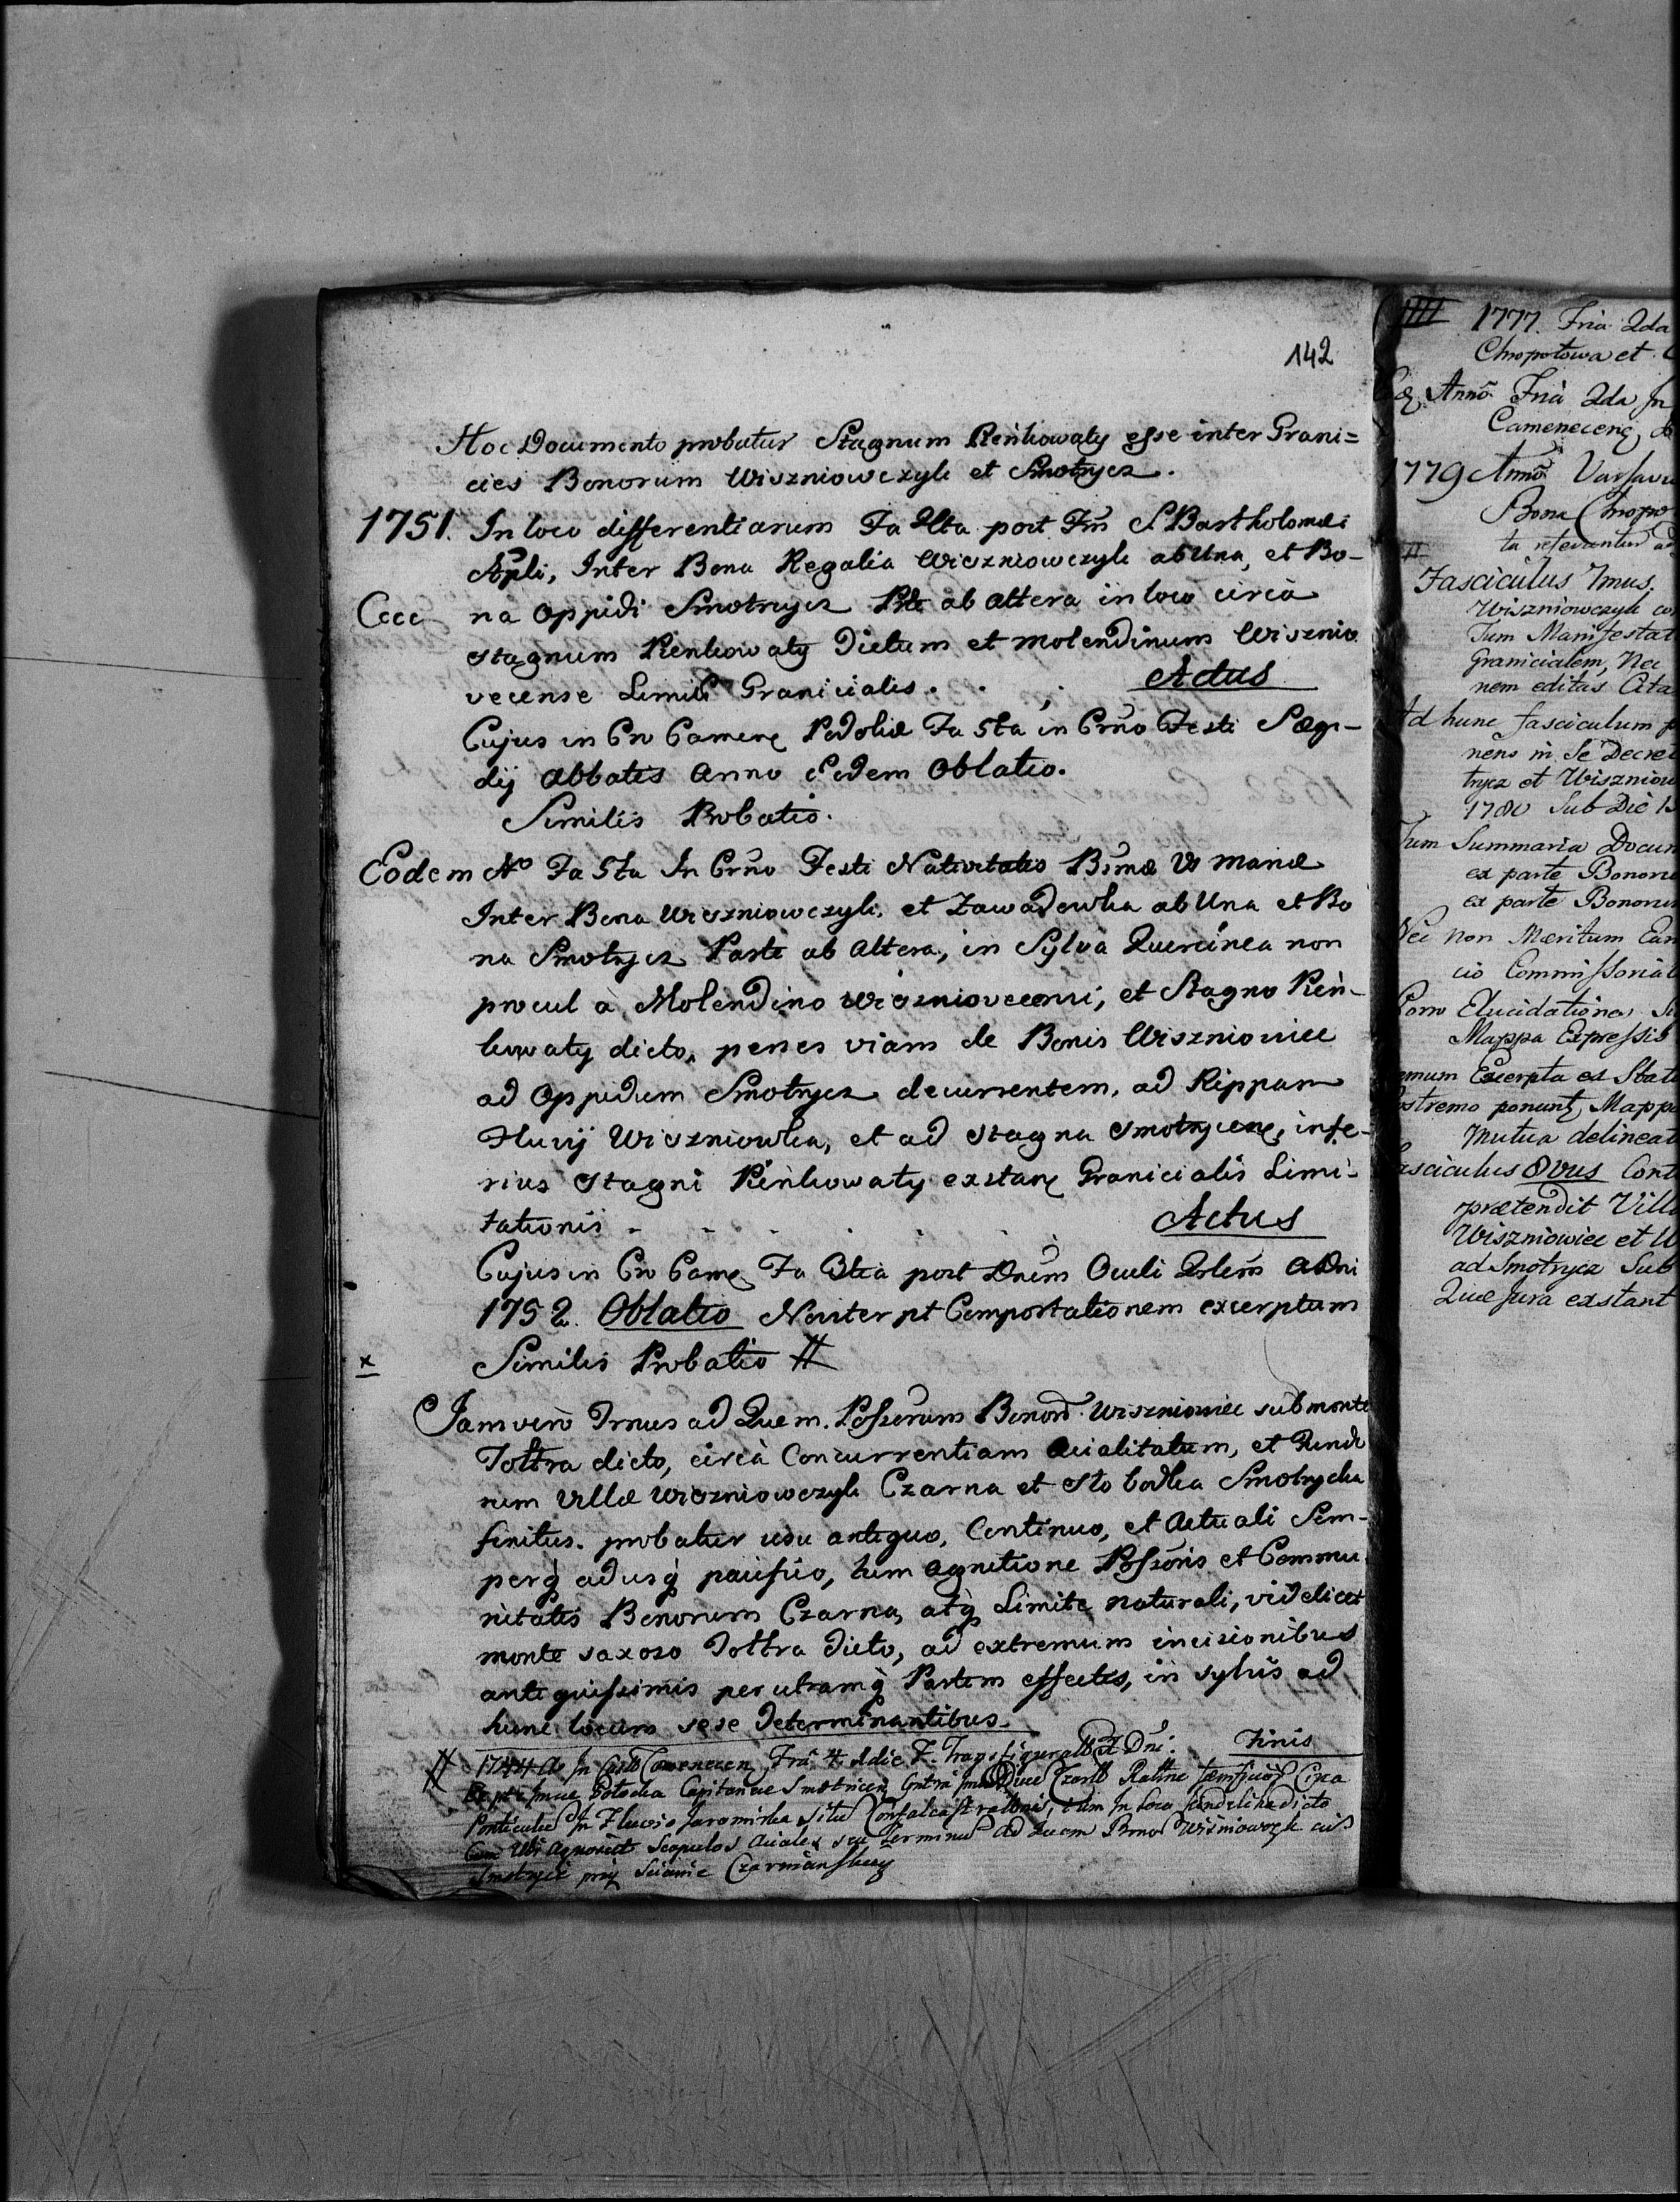 142
Hoc Documento probatur Stagnum Reńkowaty esse inter Grani=
cies Bonorum Wiszniowczyk et Smotrycz.
1751. In loco differentiarum Fa 4ta post Fm S Bartholomæi
Apli, Inter Bona Regalia Wiszniowczyk ab Una, et Bo-
Cccc na Oppidi Smotrycz Pte ab altera in loco circà
stagnum Renkowaty Dictum et molendinum Wisznio
vecense Limit Granicialis. Actus
Cujus in Cro Camene Podoliæ Fa 5ta in Crno Festi S Ægi-
dij Abbatis Anno eodem Oblatio.
Similis Probatio.
Eodem Ao Fa 5ta In Crno Festi Nativitatis Bmæ V Mariæ
Inter Bona Wiszniowczyk, et Zawadowka ab Una et Bo
na Smotrycz Parte ab Altera, in Sylva Quercinea non
procul à Molendino Wiszniovecensi, et Stagno Reń-
kowaty dicto, penes viam de Bonis Wiszniowiec
ad Oppidum Smotrycz decurrentem, ad Rippam
Fluvij Wiszniowka, et ad stagna Smotrycen, infe-
rius stagni Reńkowaty exstan Granicialis Limi-
tationis - - - Actus
Cujus in Cro Came Fa 3tia post Dnem Oculi Qdlem ADni
1752. Oblatio Noviter pt Comportationem excerptum
x Similis Probatio #
Jam vero Trnus ad Quem Possorum Bonor Wiszniowiec sub monte
Toltra dicto, circà Concurrentiam Acialitatum, et Fundo
rum Villæ Wiszniowczyk Czarna et Slobodka Smotrycka
finitus. probatur usu antiquo, Continuo, et Actuali Sem-
perq adusq pacifico, tum agnitione Possoris et Commu
nitatis Bonorum Czarna, atq Limite naturali, videlicet
monte saxoso Toltra dicto, ad extremum incisionibus
antiquissimis per utramq Partem effectis, in sylvis ad
hunc locum sese Determinantibus.
Finis
# 1744 Ao In Castro Camenecen, Fria 4 die F. Transfigurationis Dni.
Potocka Capitaneae Smotricen
Ponticulum In Fluvio Jaromirka situ
Ubi Agnoscit Scopulos Aciales seu Terminum Ad Quem Bonor Wiszniowczyk
Smotrycz przy Scianie Czarniańskiey
#### 1777. Fria 2da
Chropotowa et
Eo Anno Fria 2da In
Camenecen,
1779 Anno Varsavi
Bona Chropo
#
ta referuntur ad
Fasciculus 7mus.
Wiszniowczyk co
Tum Manifestat
Granicialem, Nec
nem editas Cita
Ad hunc fasciculum
nens in Se Decret
trycz et Wiszniow
1780 Sub Die
Tum Summaria Docum
ex parte Bonoru
ex parte Bonorum
Nec non Meritum
cio Commissorial
Porro Elucidationes
Mappa Expressis
Excerpta ex Stat
Postremo ponunt Mappa
mutua delineat
Fasciculus 8vus Cont
prætendit Vill
Wiszniowiec et
ad Smotrycz Sub
Quæ Jura exstant